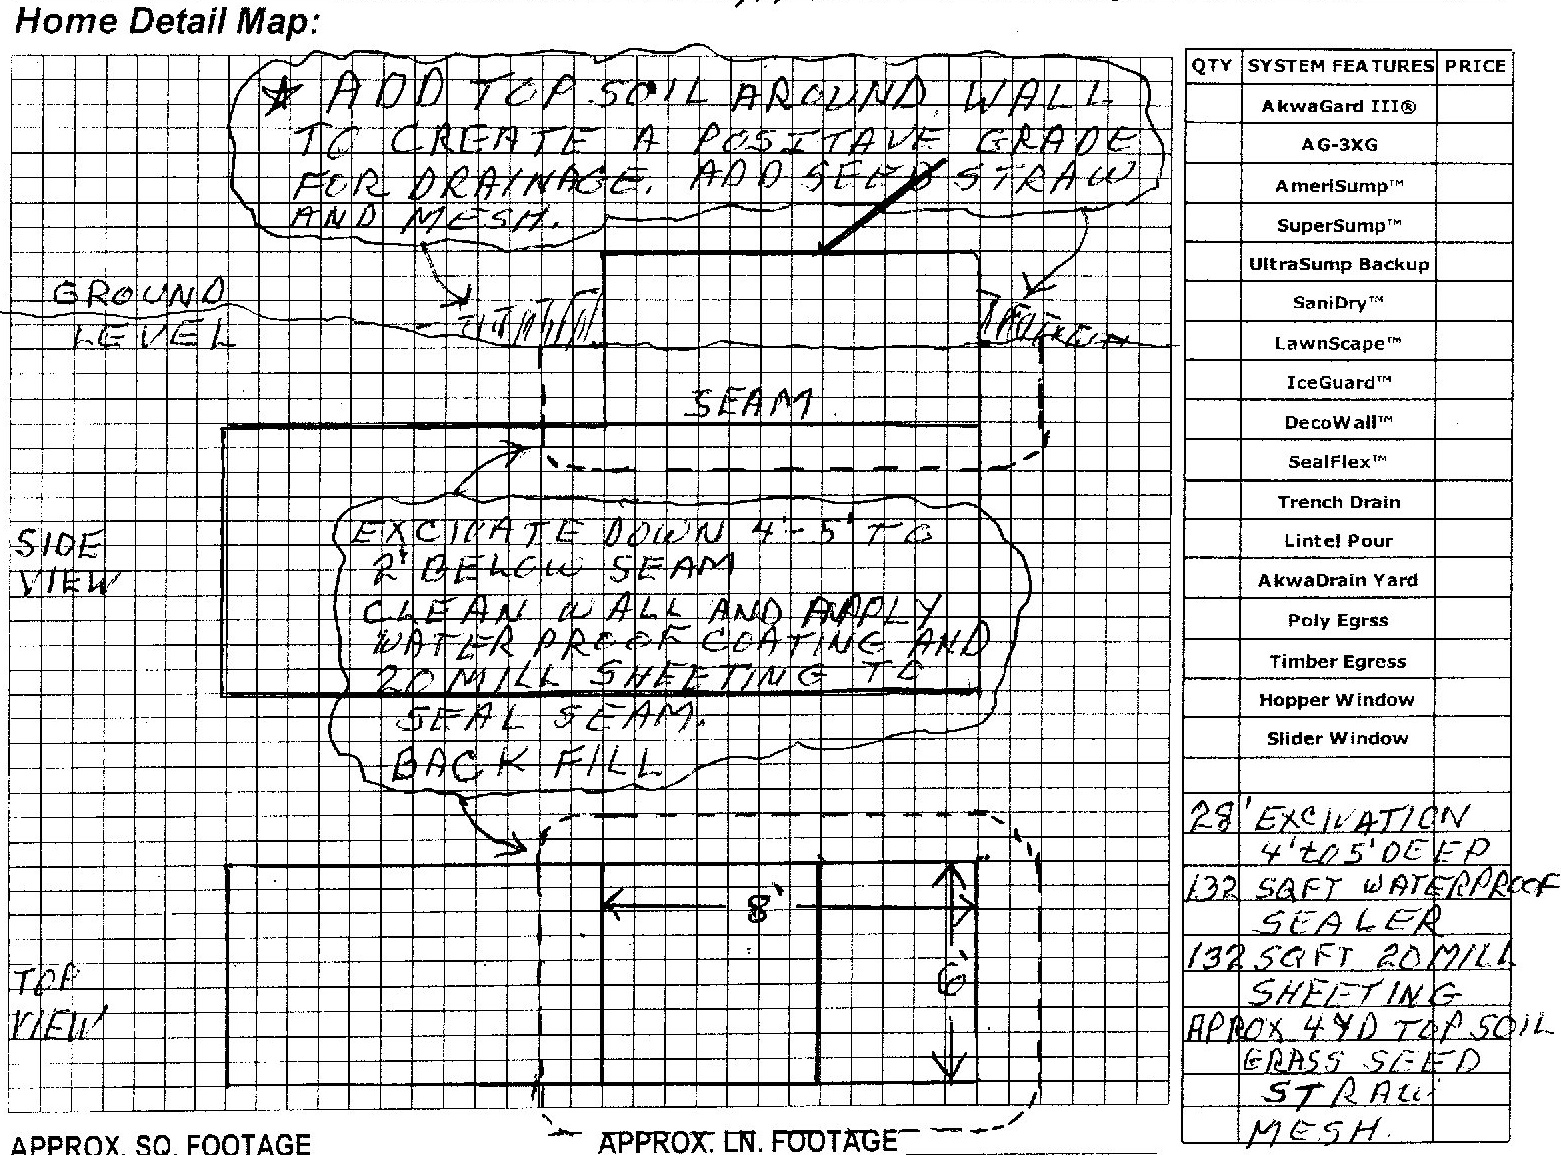 Home Detail Map:
★ ADD TOP SOIL AROUND WALL
TO CREATE A POSITAVE GRADE
FOR DRAINAGE. ADD SEED STRAW
AND MESH.
GROUND
LEVEL
SEAM
SIDE
VIEW
EXCIVATE DOWN 4'-5' TO
2' BELOW SEAM
CLEAN WALL AND APPLY
WATER PROOF COATING AND
20 MILL SHEETING TO
SEAL SEAM.
BACK FILL
8'
6'
TOP
VIEW
APPROX. SQ. FOOTAGE
APPROX. LN. FOOTAGE
QTY SYSTEM FEATURES PRICE
AkwaGard III®
AG-3XG
AmeriSump™
SuperSump™
UltraSump Backup
SaniDry™
LawnScape™
IceGuard™
DecoWall™
SealFlex™
Trench Drain
Lintel Pour
AkwaDrain Yard
Poly Egrss
Timber Egress
Hopper Window
Slider Window
28' EXCIVATION
4' to 5' DEEP
132 SQFT WATERPROOF
SEALER
132 SQFT 20 MILL
SHEETING
APROX 4 YD TOP SOIL
GRASS SEED
STRAW
MESH.